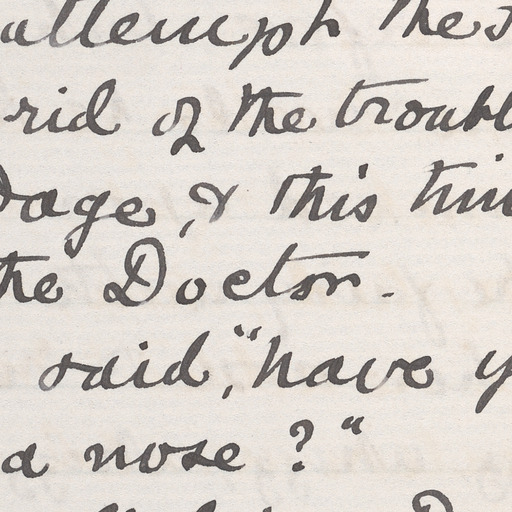 attempt the
rid of the troubl
Dage, & this tim
the Doctor.
said, "have y
a nose?"